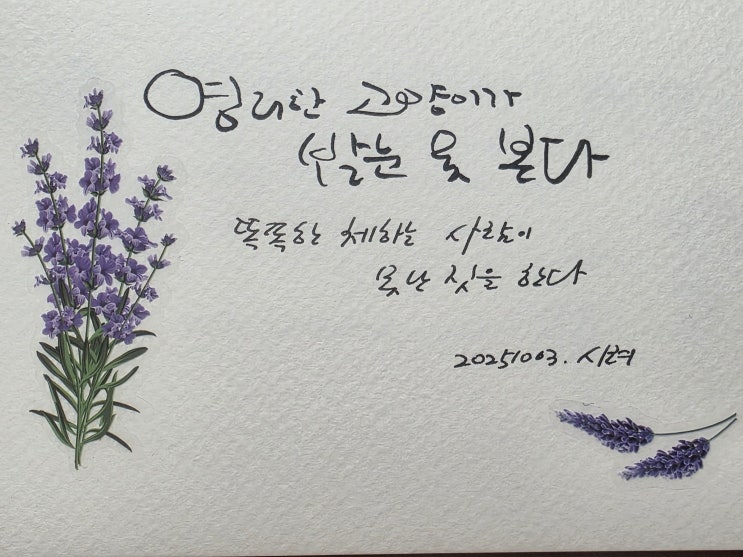 영리한 고양이가
밤눈 못 본다
똑똑한 체하는 사람이
못난 짓을 한다
20251003. 시혀